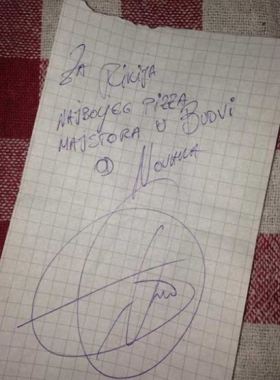 Za Rikija
NAJBOLJEG PIZZA
MAJSTORA U BUDVI
OD Novaka